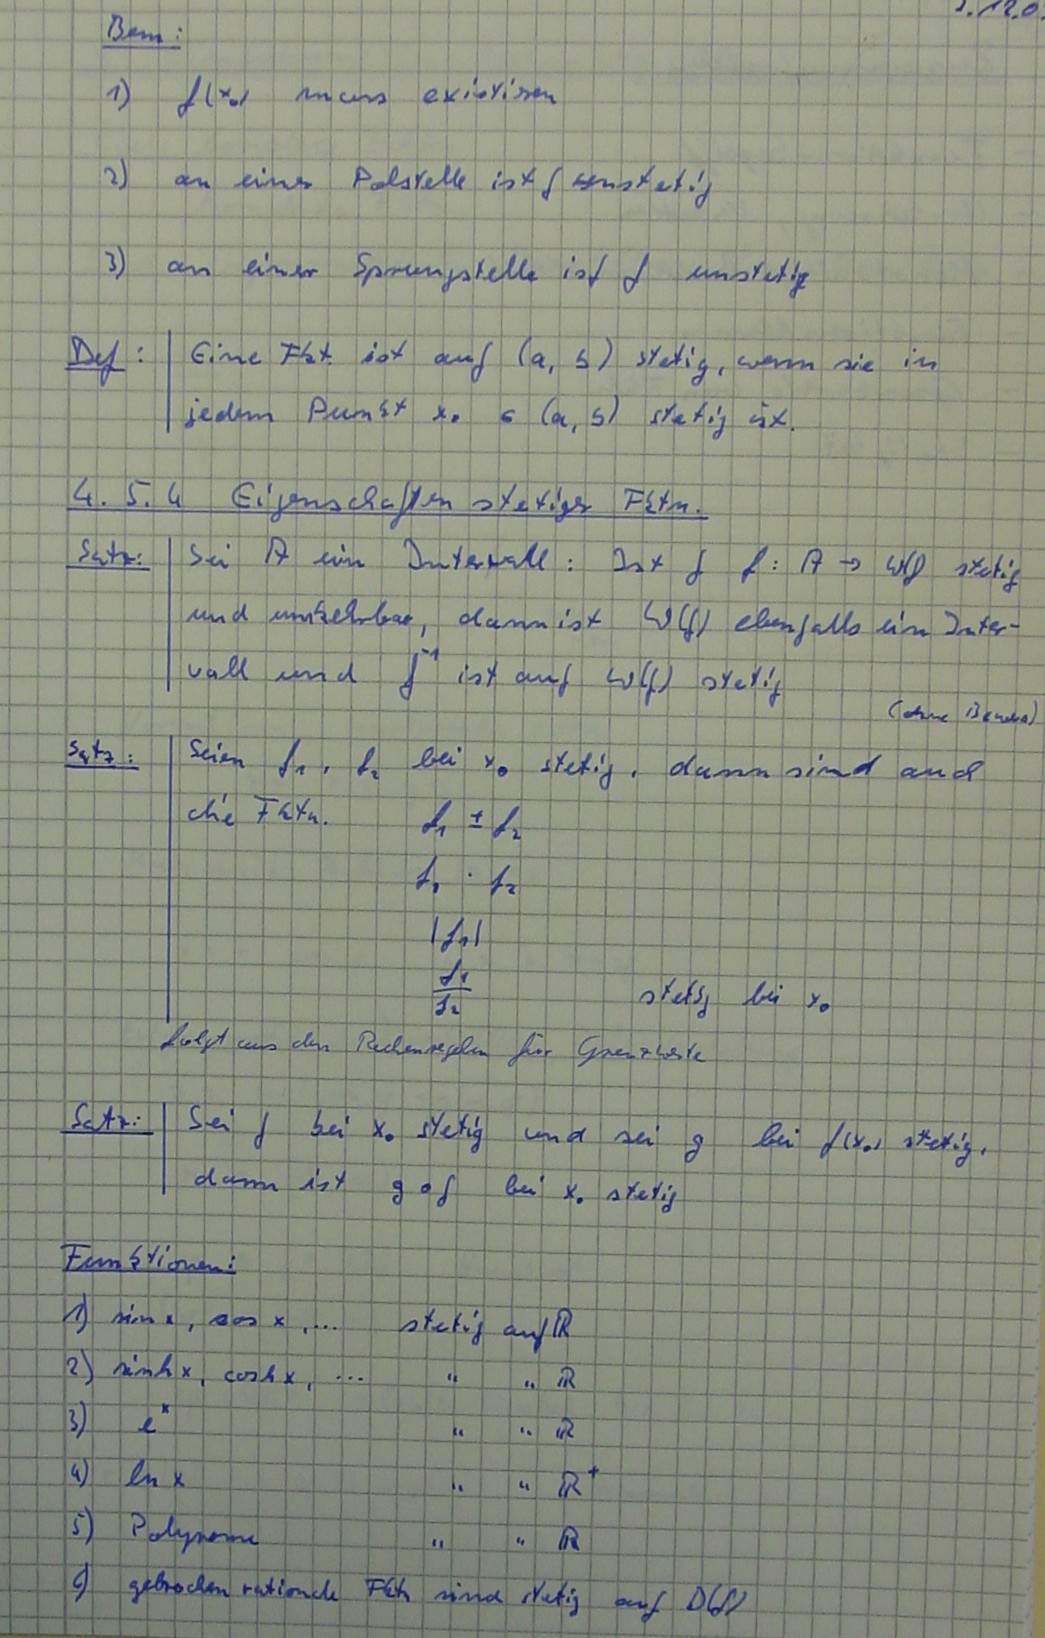 Bem:
1) f(x₀) muss existieren
2) an einer Polstelle ist f unstetig
3) an einer Sprungstelle ist f unstetig
Def: Eine Fkt. ist auf (a, b) stetig, wenn sie in
jedem Punkt x₀ ∈ (a, b) stetig ist.
4.5.4 Eigenschaften stetiger Fktn.
Satz: Sei A ein Intervall: Ist f f: A → W(f) stetig
und umkehrbar, dann ist W(f) ebenfalls ein Inter-
vall und f⁻¹ ist auf W(f) stetig
(ohne Beweis)
Satz: Seien f₁, f₂ bei x₀ stetig, dann sind auch
die Fktn. f₁ ± f₂
f₁ · f₂
|f₁|
f₁/f₂ stetig bei x₀
folgt aus den Rechenregeln für Grenzwerte
Satz: Sei f bei x₀ stetig und sei g bei f(x₀) stetig,
dann ist g∘f bei x₀ stetig
Funktionen:
1) sin x, cos x, ... stetig auf ℝ
2) sinh x, cosh x, ... " " ℝ
3) eˣ " " ℝ
4) ln x " " ℝ⁺
5) Polynome " " ℝ
6) gebrochen rationale Fktn sind stetig auf D(f)